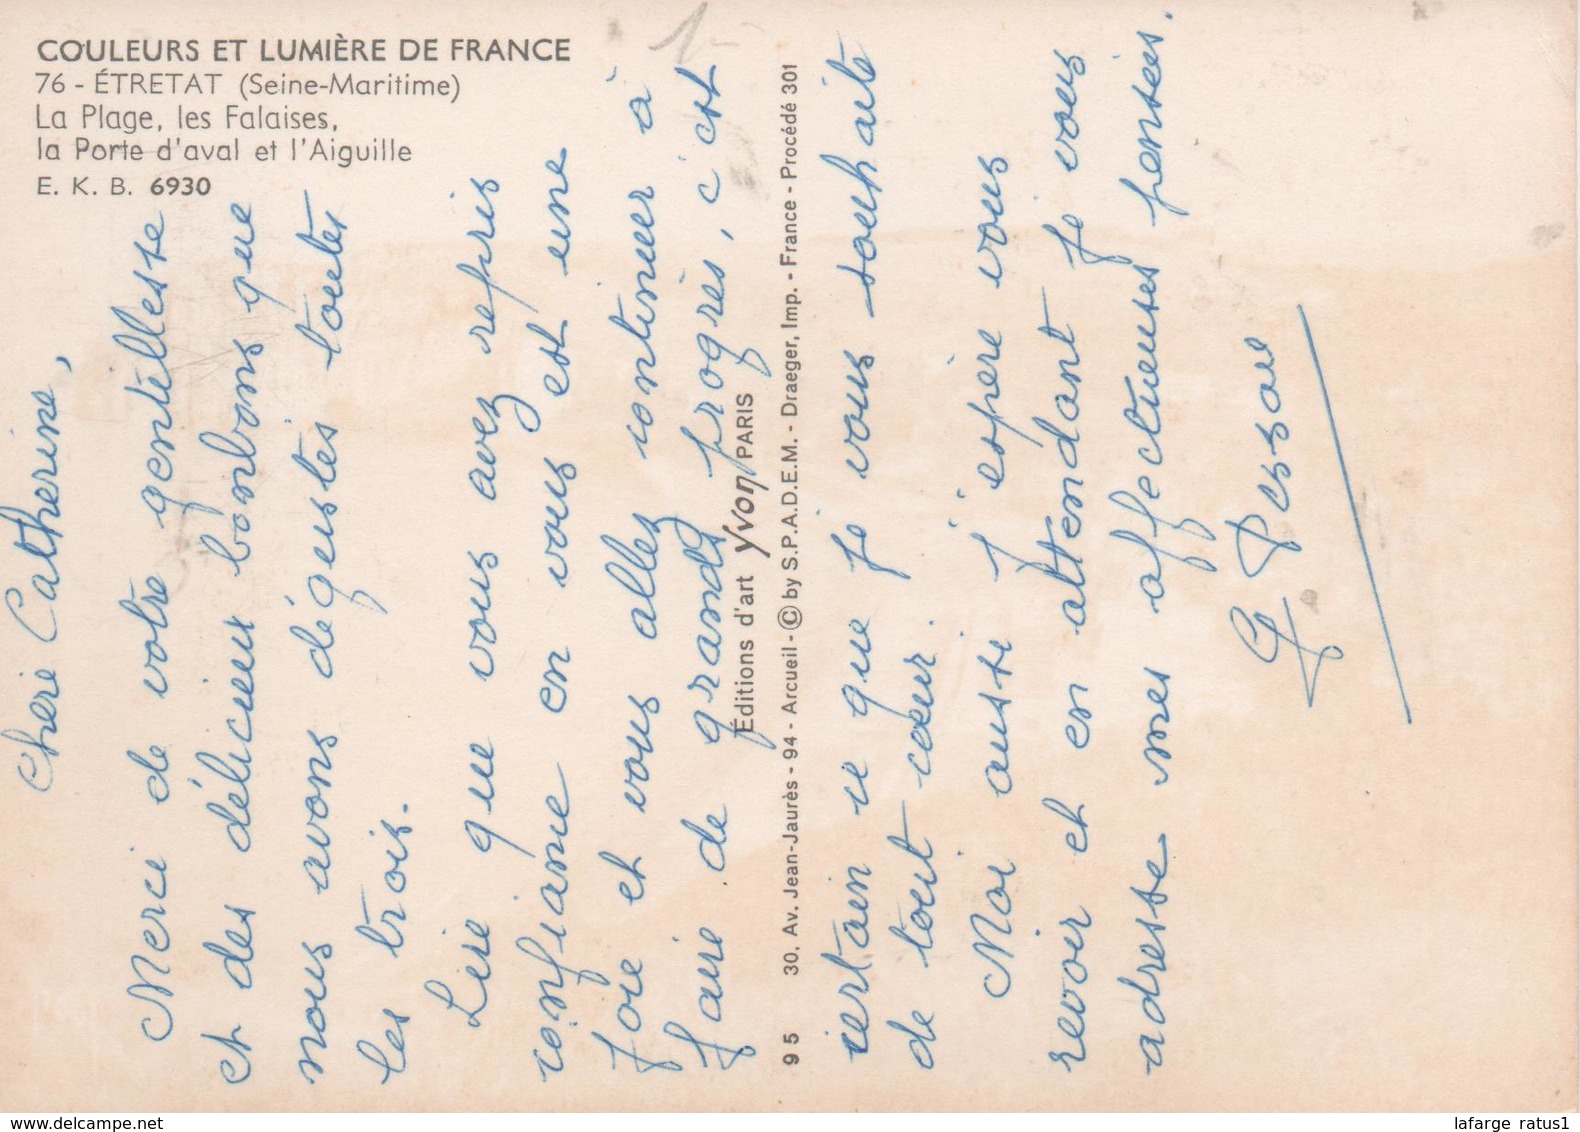 COULEURS ET LUMIÈRE DE FRANCE
76 - ÉTRETAT (Seine-Maritime)
La Plage, les Falaises,
la Porte d'aval et l'Aiguille
E. K. B. 6930
Chère Catherine,
Merci de votre gentillesse
et des délicieux bonbons que
nous avons dégustés toutes
les trois.
Lire que vous avez repris
confiance en vous est une
joie et vous allez continuer à
faire de grands progrès, c'est
certain ce que je vous souhaite
de tout cœur.
Moi aussi j'espère vous
revoir et en attendant je vous
adresse mes affectueuses pensées.
G. Pessoe
Éditions d'art Yvon PARIS
95 30, Av. Jean-Jaurès - 94 - Arcueil - © by S.P.A.D.E.M. - Draeger, Imp. - France - Procédé 301
lafarge ratus1